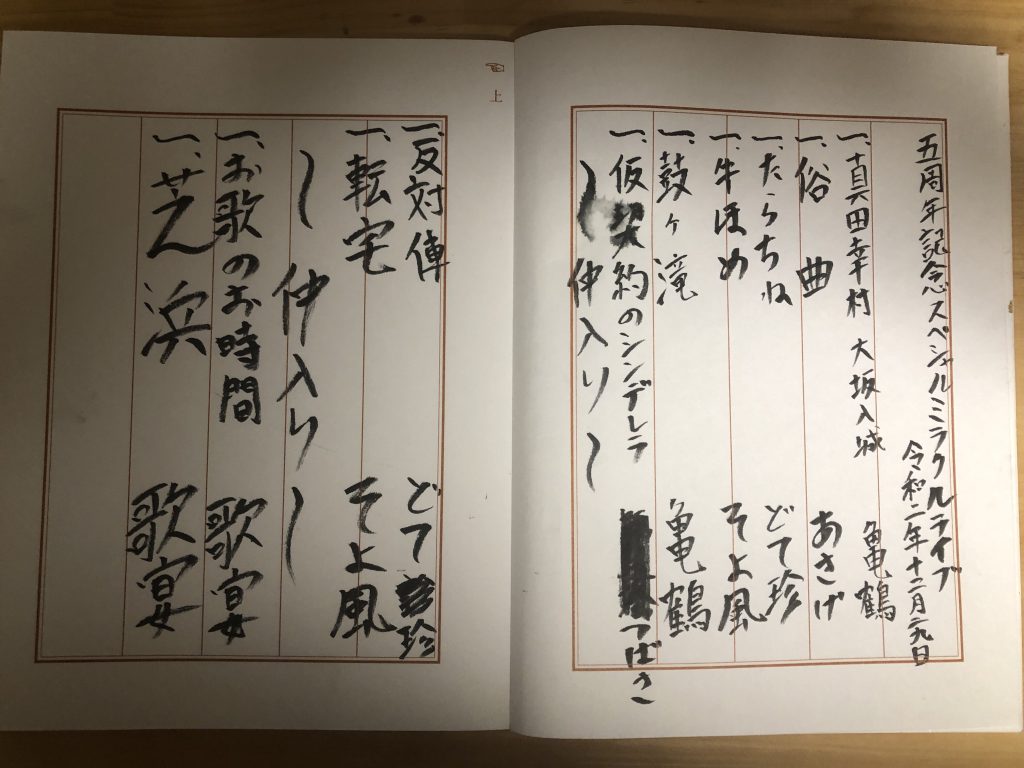 五周年記念スペシャルミラクルルライブ
令和二年十二月二九日
一、真田幸村 大坂入城 亀鶴
一、俗曲 あさげ
一、たらちね どて珍
一、牛ほめ そよ風
一、鼓ヶ滝 亀鶴
一、仮 約のシンデレラ つばき
〜仲入り〜
上
一、反対俥 どて珍
一、転宅 そよ風
〜仲入り〜
一、お歌のお時間 歌宴
一、芝浜 歌宴